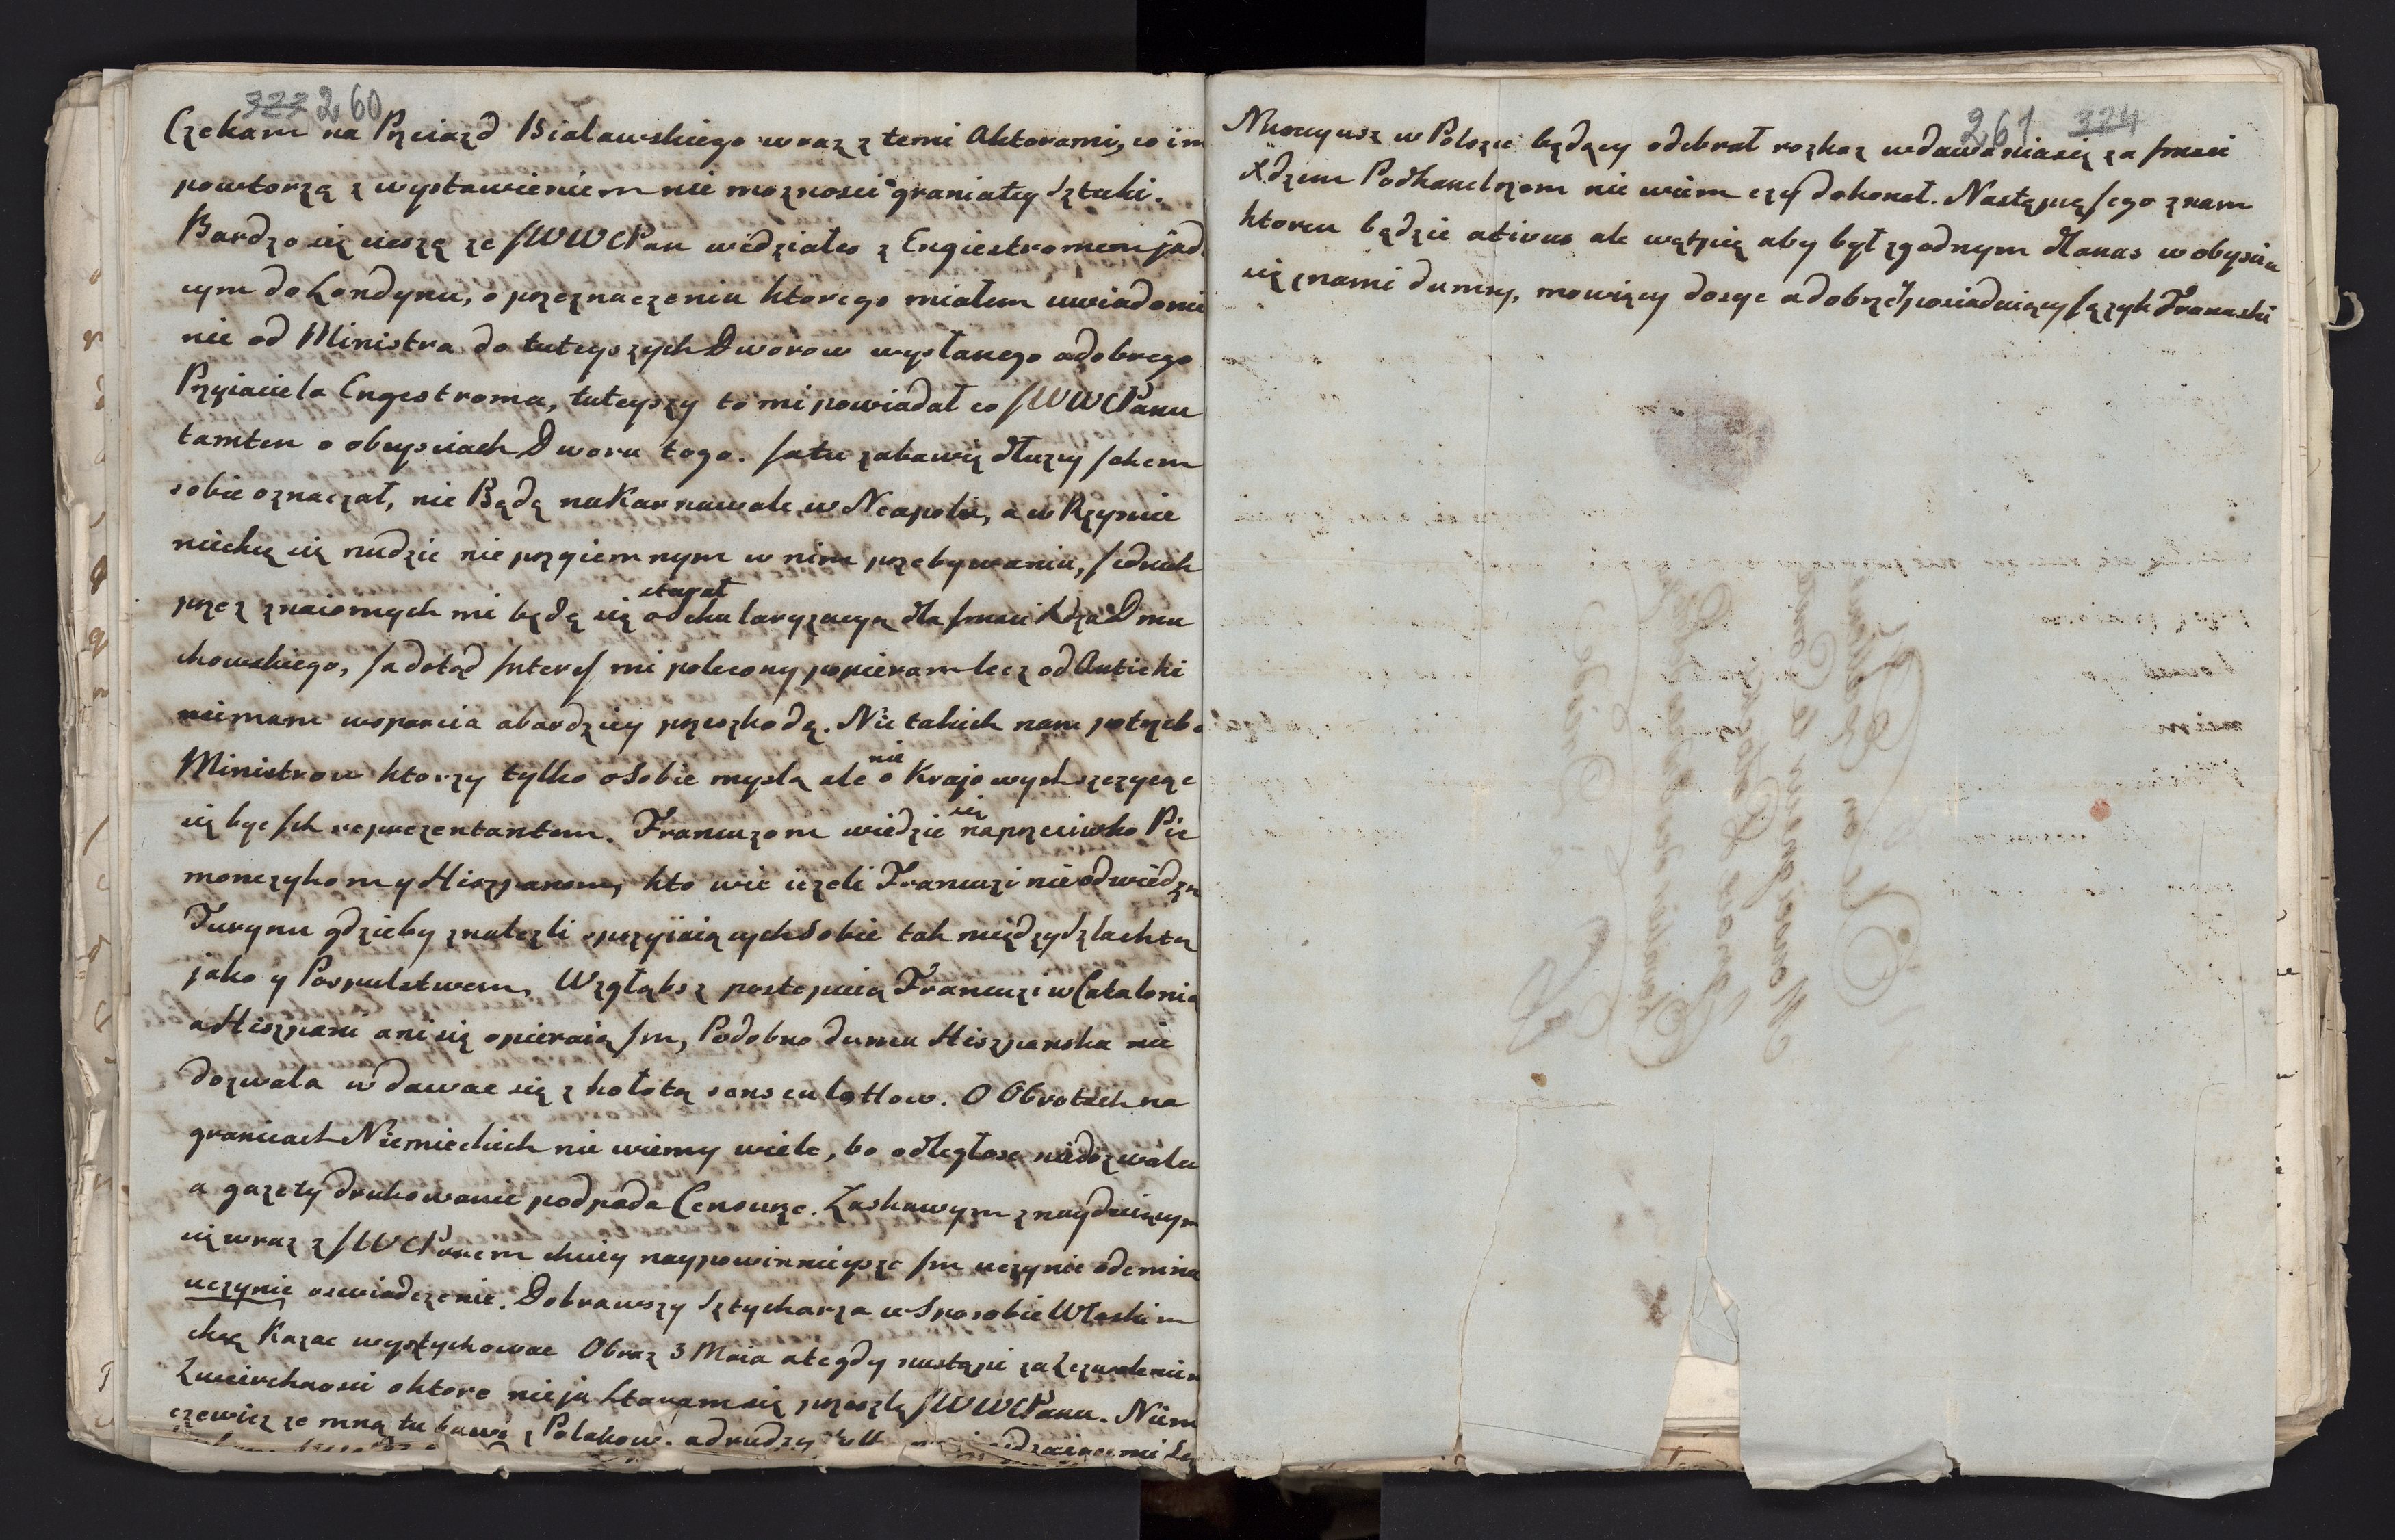 323 260
Czekam na Przeiazd Bialawskiego wraz z temi Aktorami, co im
powtorzą z wystawieniem nie moznosci graniałey Sztuki.
Bardzo się cieszę ze JWWCPan widziałes z Engiestromem jad
cym do Londynu, o przeznaczeniu ktorego miałem uwiadomie
nie od Ministra do tuteyszych Dworow wysłanego a dobrego
Przyiaciela Engestroma, tuteyszy to mi powiadał co JWWCPanu
tamten o obeysciach Dworu tego. Ja tu zabawię dłuzey jakem
sobie oznaczał, nie Będę na Karnawale w Neapolu, a w Rzymie
niechcę się nudzic nie przyiemnym w nim przebywaniu, Jednak
przez znaiomych mi będę się starał o Sekularyzacyą dla Jmsci Xdza Dmu
chowskiego, Ja dotąd Interes mi polecony popieram lecz od Anticki
niemam wsparcia a bardziey przeszkodę. Nie takich nam potrzeba
Ministrow ktorzy tylko o Sobie myslą ale nie o Krajowych szczycąc
się byc Ich reprezentantem. Francuzom wiedzie się naprzeciwko Pie
monczykom y Hiszpanom, kto wie iezeli Francuzi nie odwiedzą
Turynu gdzieby znalezli sprzyiaiących Sobie tak między Szlachtą
jako y Pospulstwem, Wzgłąbsz postępuią Francuzi w Catalonią
a Hiszpani ani się opieraią Im, Podobno duma Hiszpanska nie
dozwala wdawac się z hołotą sansculottow. O Obrotach na
granicach Niemieckich nie wiemy wiele, bo odległosc niedozwala
a gazety drukowanie podpada Censurze. Łaskawym znayduiącym
się wraz z JWCPanem chciey naypowinnieysze Im uczynic odemnie
uczynic oswiadczenie. Dobrawszy Sztycharza w Sposobie Włoskim
chcę Kazac wysztychowac Obraz 3 Maia ale gdy nastąpi za Zezwoleniem
Zwierchnosci o ktore nie ja Staram się przeszlę JWWCPanu. Niem
czewicz ze mną tu bawi z Polakow. a drudzy
261 324
Nuncyusz w Polszcze będący odebrał rozkaz wdawania się za Jmsci
Xdzem Podkanclrzem nie wiem czy dokonał. Następcę Jego znam
ktoren będzie ativus ale wątpię aby był zgodnym dla nas w obysciu
się znami dumny, mowiący dosyc a dobrze posiadaiący Język Francuski